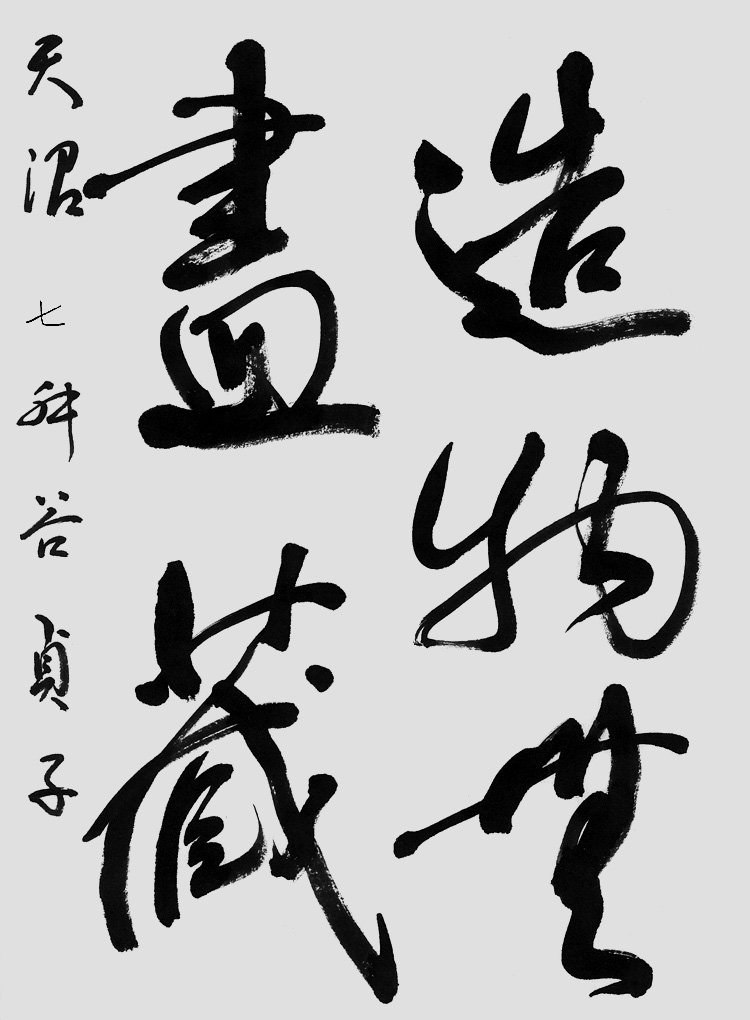 造物無
盡藏
天沼 七 舛谷貞子